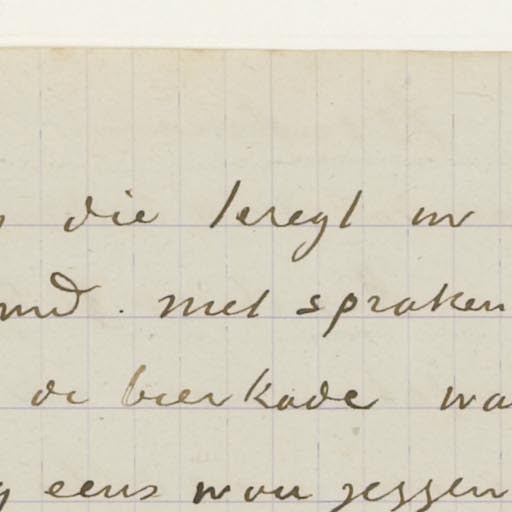 die leregt uw
met spraken
de bierkade wa
eens wou zeggen